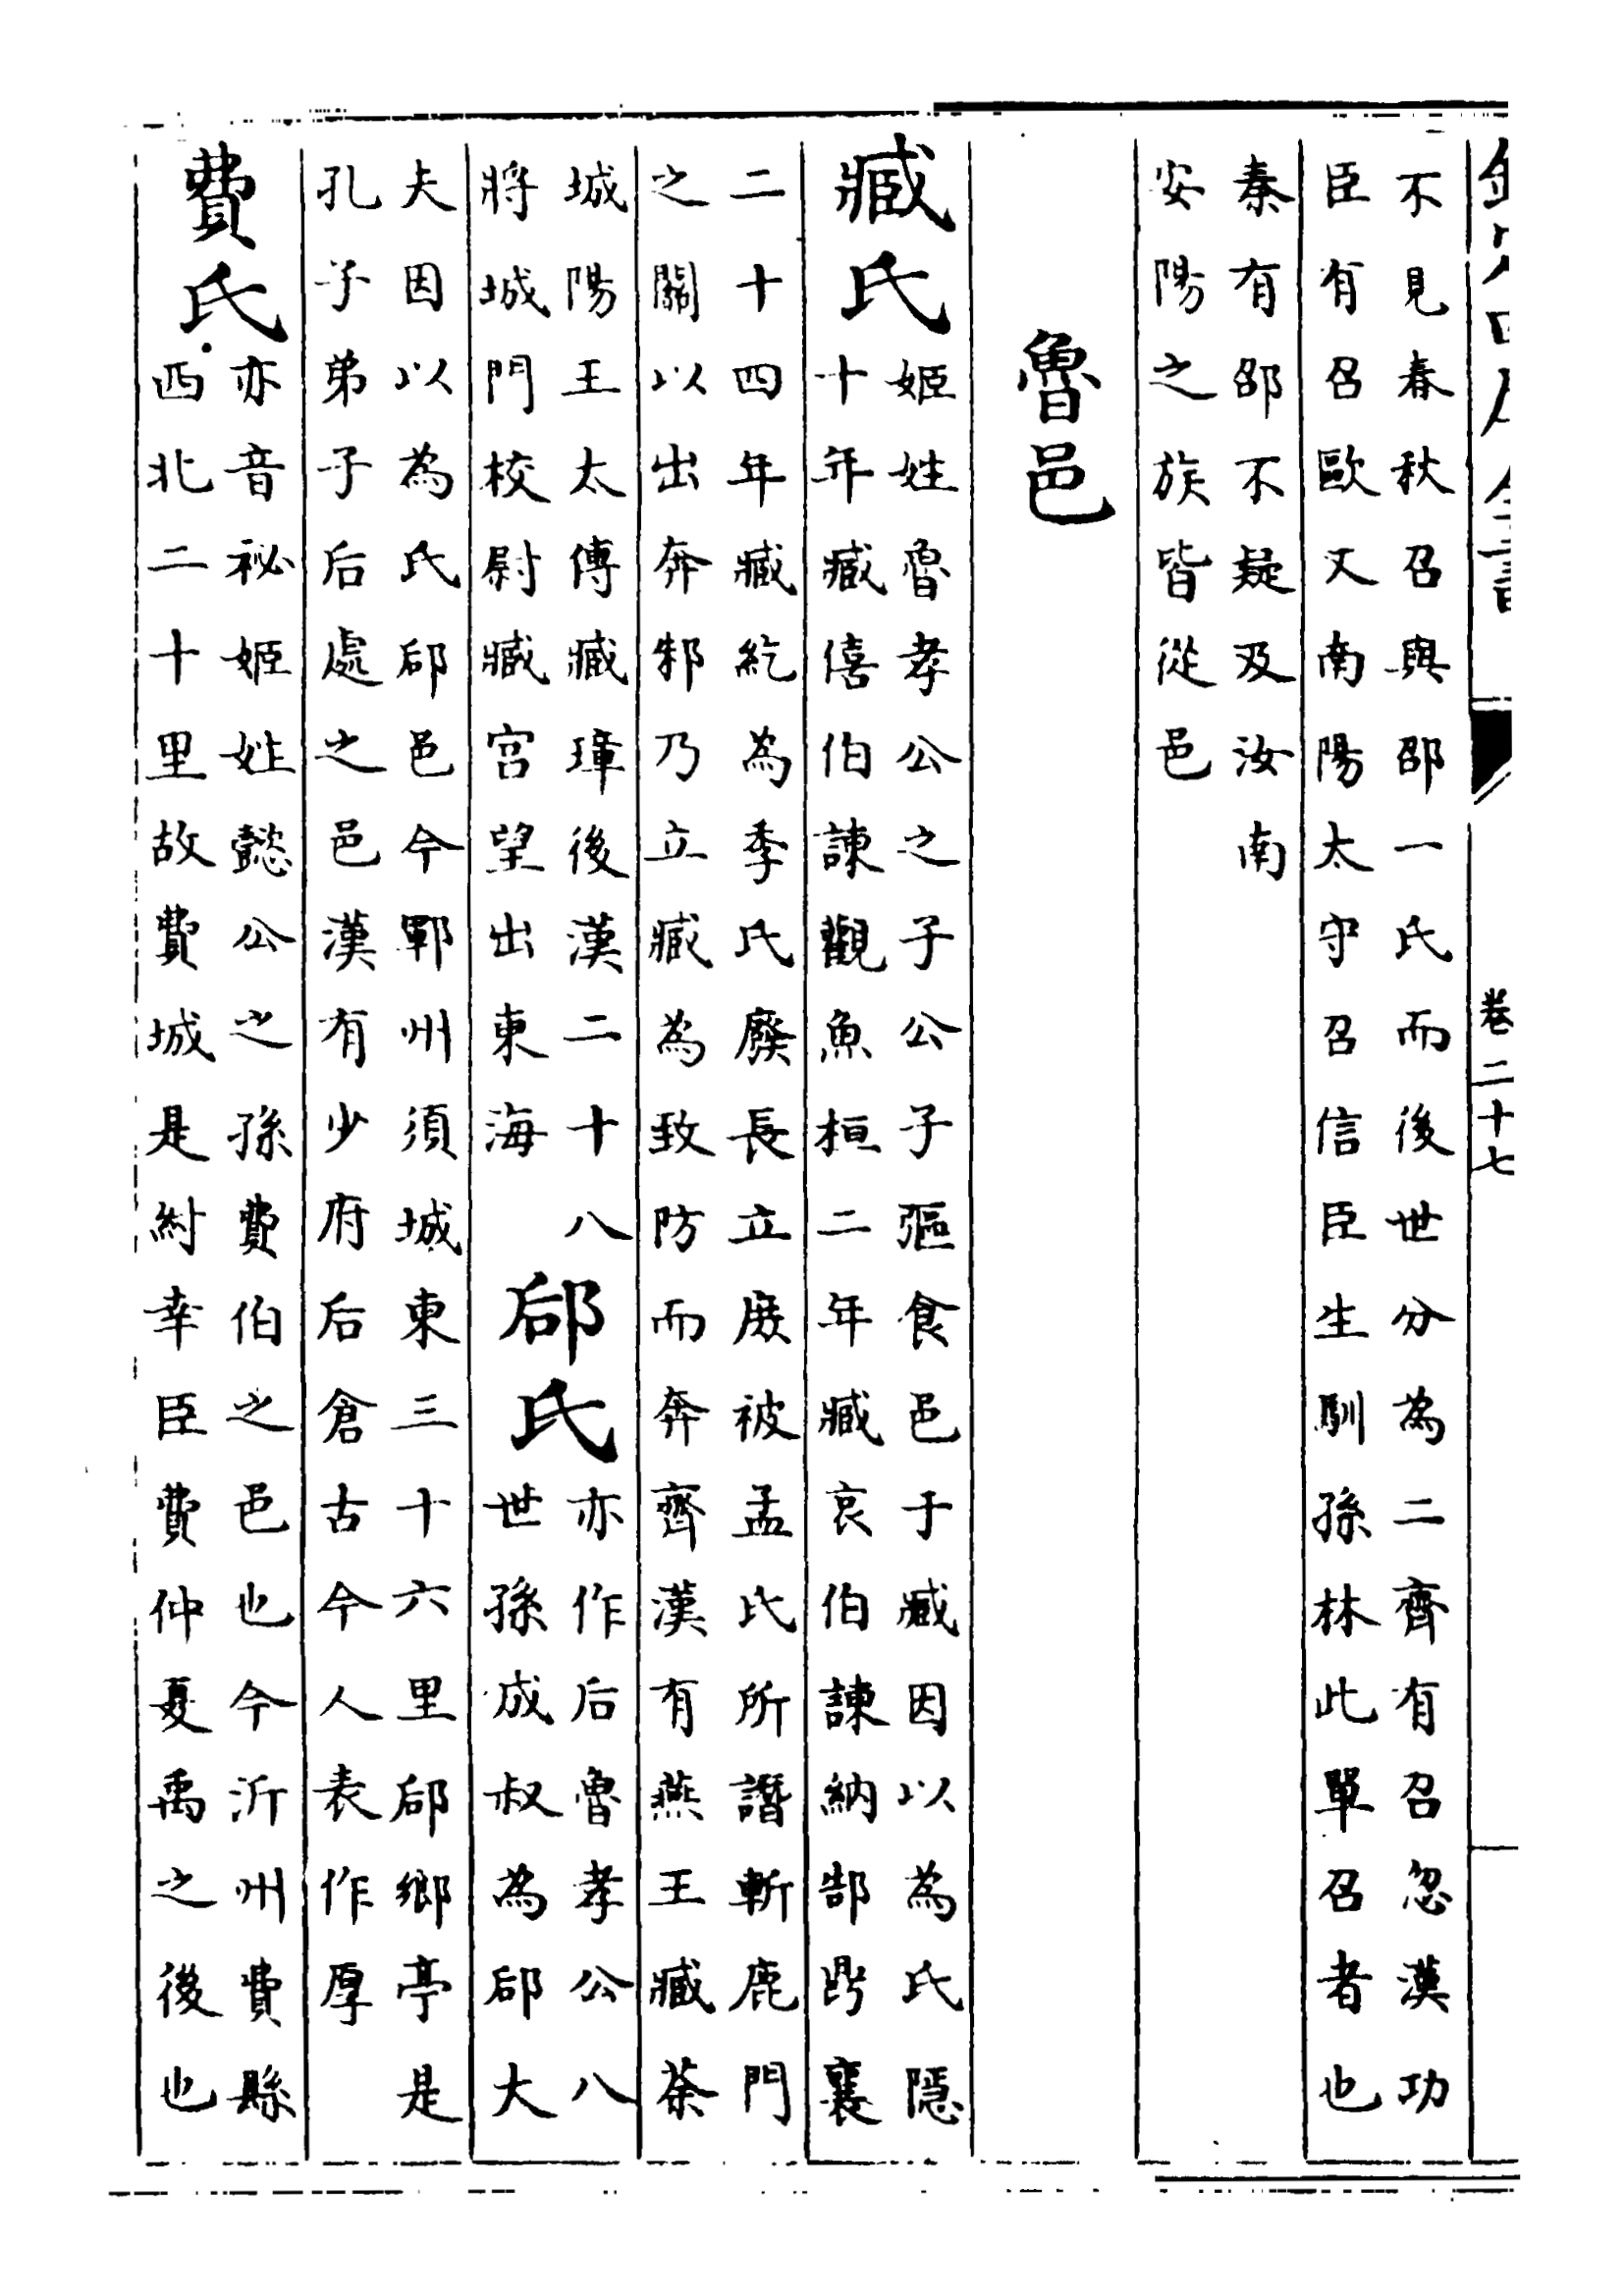 欽定四庫全書
卷二十七
不見春秋召與邵一氏而後世分為二齊有召忽漢功
臣有召歐又南陽太守召信臣生馴孫林此單召者也
秦有邵不疑及汝南
安陽之族皆從邑
魯邑
臧氏
姬姓魯孝公之子公子彄食邑于臧因以為氏隱
十年臧僖伯諌觀魚桓二年臧哀伯諌納郜鼎襄
二十四年臧紇為季氏廢長立庶被孟氏所譖斬鹿門
之關以出奔邾乃立臧為致防而奔齊漢有燕王臧荼
城陽王太傅臧璋後漢二十八
將城門校尉臧宫望出東海
郈氏
亦作后魯孝公八
世孫成叔為郈大
夫因以為氏郈邑今鄆州須城東三十六里郈鄉亭是
孔子弟子后處之邑漢有少府后倉古今人表作厚
費氏
亦音祕姬姓懿公之孫費伯之邑也今沂州費縣
西北二十里故費城是紂幸臣費仲夏禹之後也